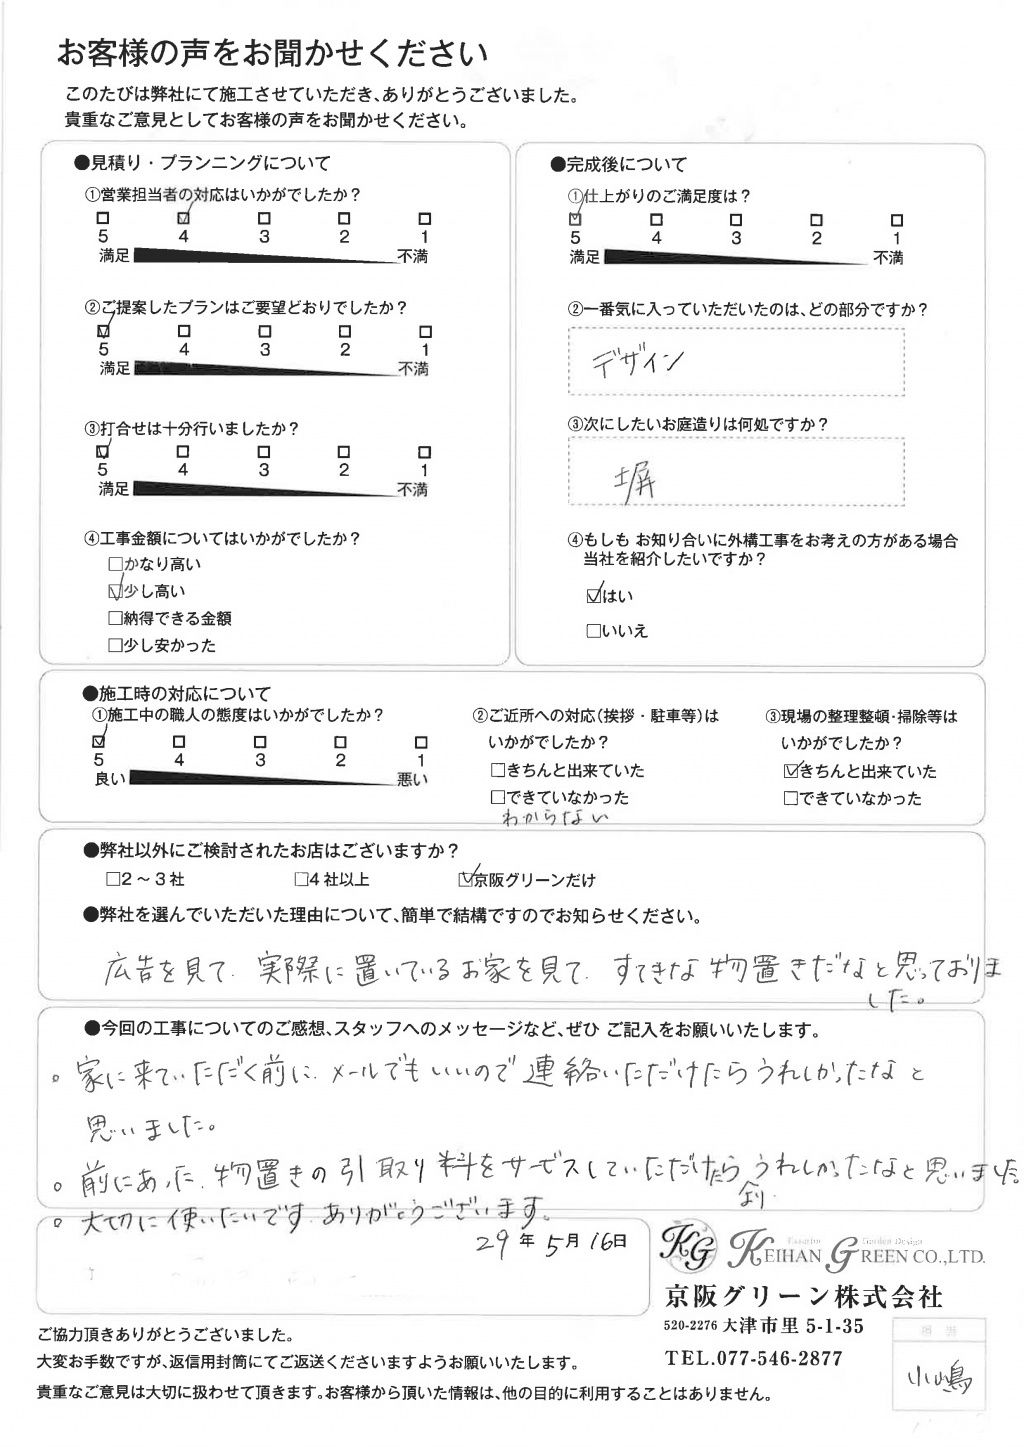 お客様の声をお聞かせください
このたびは弊社にて施工させていただき、ありがとうございました。
貴重なご意見としてお客様の声をお聞かせください。
●見積り・プランニングについて
①営業担当者の対応はいかがでしたか？
5 4 3 2 1
満足 不満
②ご提案したプランはご要望どおりでしたか？
5 4 3 2 1
満足 不満
③打合せは十分行いましたか？
5 4 3 2 1
満足 不満
④工事金額についてはいかがでしたか？
□かなり高い
☑少し高い
□納得できる金額
□少し安かった
●完成後について
①仕上がりのご満足度は？
5 4 3 2 1
満足 不満
②一番気に入っていただいたのは、どの部分ですか？
デザイン
③次にしたいお庭造りは何処ですか？
塀
④もしも お知り合いに外構工事をお考えの方がある場合
当社を紹介したいですか？
☑はい
□いいえ
●施工時の対応について
①施工中の職人の態度はいかがでしたか？
5 4 3 2 1
良い 悪い
②ご近所への対応（挨拶・駐車等）は
いかがでしたか？
□きちんと出来ていた
□できていなかった
わからない
③現場の整理整頓・掃除等は
いかがでしたか？
☑きちんと出来ていた
□できていなかった
●弊社以外にご検討されたお店はございますか？
□2～3社 □4社以上 ☑京阪グリーンだけ
●弊社を選んでいただいた理由について、簡単で結構ですのでお知らせください。
広告を見て、実際に置いているお家を見て、すてきな物置きだなと思っておりま
した。
●今回の工事についてのご感想、スタッフへのメッセージなど、ぜひ ご記入をお願いいたします。
。家に来ていただく前に、メールでもいいので連絡いただけたらうれしかったなと
思いました。
。前にあった、物置きの引取り料をサービスしていただけたらうれしかったなと思いました。
。大切に使いたいです。ありがとうございます。
29年5月16日
KG KEIHAN GREEN CO.,LTD.
Exterior Garden Design
京阪グリーン株式会社
520-2276 大津市里 5-1-35
TEL.077-546-2877
小嶋
ご協力頂きありがとうございました。
大変お手数ですが、返信用封筒にてご返送くださいますようお願いいたします。
貴重なご意見は大切に扱わせて頂きます。お客様から頂いた情報は、他の目的に利用することはありません。